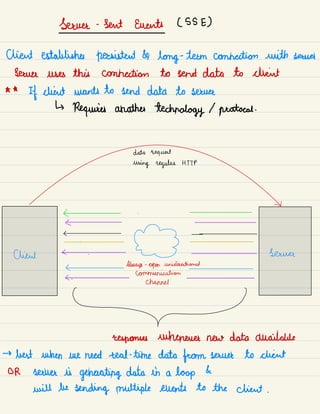 Server - Sent Events (SSE)
Client establishes persistent & long-term connection with server
Server uses this connection to send data to client
** If client wants to send data to server
↳ Requires another technology / protocol.
data request
using regular HTTP
Client
Server
Always-open unidirectional
Communication
Channel
responses whenever new data available
→ best when we need real-time data from server to client
OR server is generating data in a loop &
will be sending multiple events to the client.